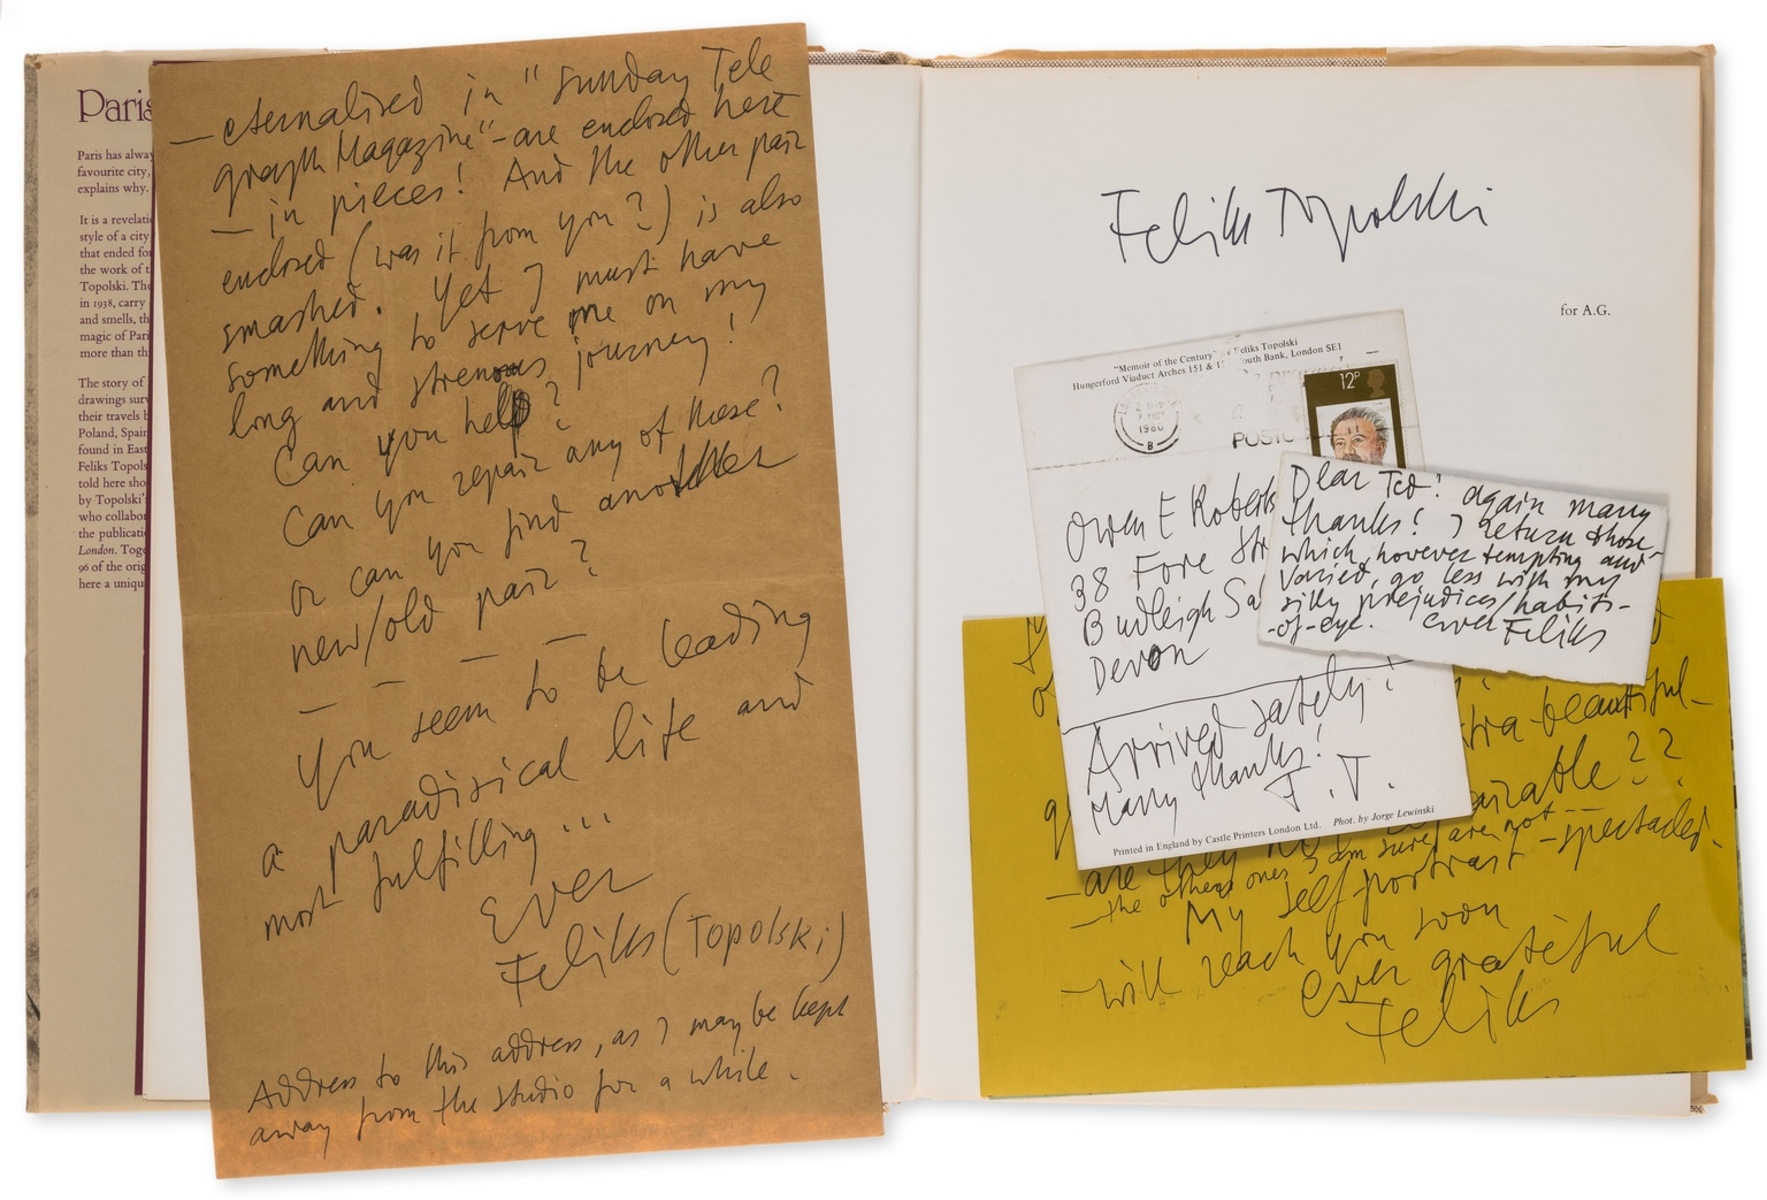 Paris
Paris has alway
favourite city,
explains why.
It is a revelati
style of a city
that ended fo
the work of t
Topolski. The
in 1938, carry
and smells, th
magic of Pari
more than th
The story of
drawings surv
their travels b
Poland, Spain
found in East
Feliks Topols
told here sho
by Topolski's
who collabor
the publicati
London. Toge
96 of the orig
here a uniqu
— eternalised in "Sunday Tele
graph Magazine" - are enclosed here
— in pieces! And the other pair
enclosed (was it from you?) is also
smashed. Yet I must have
something to serve me on my
long and strenous journey!
Can you help?
Can you repair any of these?
or can you find another
new/old pair?
— — — —
You seem to be leading
a paradisical life and
most fulfilling...
Ever
Feliks (Topolski)
Address to this address, as I may be kept
away from the studio for a while.
Feliks Topolski
for A.G.
"Memoir of the Century" by Feliks Topolski
Hungerford Viaduct Arches 151 & 15 South Bank, London SE1
1980
B
POSTC
12P
Owen E Roberts
38 Fore Str
Budleigh Sa
Devon
Arrived safely!
Many thanks!
F.T.
Printed in England by Castle Printers London Ltd. Phot. by Jorge Lewinski
Dear Ted! again many
thanks! I return those
which, however tempting and
varied, go less with my
silly prejudices/habits-
-of-eye. ever Feliks
xtra-beautiful-
airable??
— are they no
— the other ones I am sure are not —
My self portrait - spectacled-
— will reach you soon
ever grateful
Feliks